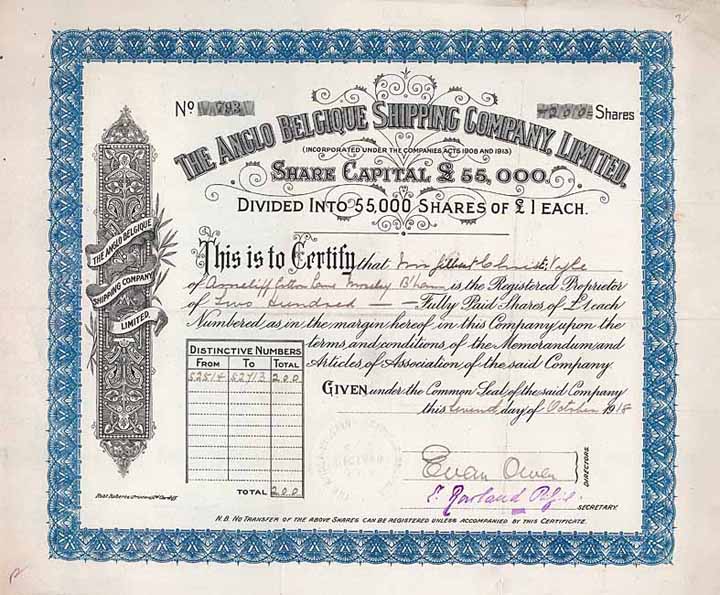 2
No 793
200 Shares
THE ANGLO BELGIQUE SHIPPING COMPANY, LIMITED.
(INCORPORATED UNDER THE COMPANIES ACTS 1908 AND 1913)
SHARE CAPITAL £55,000.
DIVIDED INTO 55,000 SHARES OF £1 EACH.
THE ANGLO BELGIQUE
SHIPPING COMPANY,
LIMITED.
This is to Certify that Gilbert Christ. Vyle
of Cotton Lane Moseley B'ham is the Registered Proprietor
of Two Hundred — Fully Paid Shares of £1 each
Numbered as in the margin hereof in this Company upon the
terms and conditions of the Memorandum and
Articles of Association of the said Company.
GIVEN under the Common Seal of the said Company
this seventh day of October 1918
DISTINCTIVE NUMBERS
FROM TO TOTAL
52514 52713 200
TOTAL 200
Evan Owen
DIRECTORS.
Rowland
SECRETARY.
N.B. NO TRANSFER OF THE ABOVE SHARES CAN BE REGISTERED UNLESS ACCOMPANIED BY THIS CERTIFICATE.